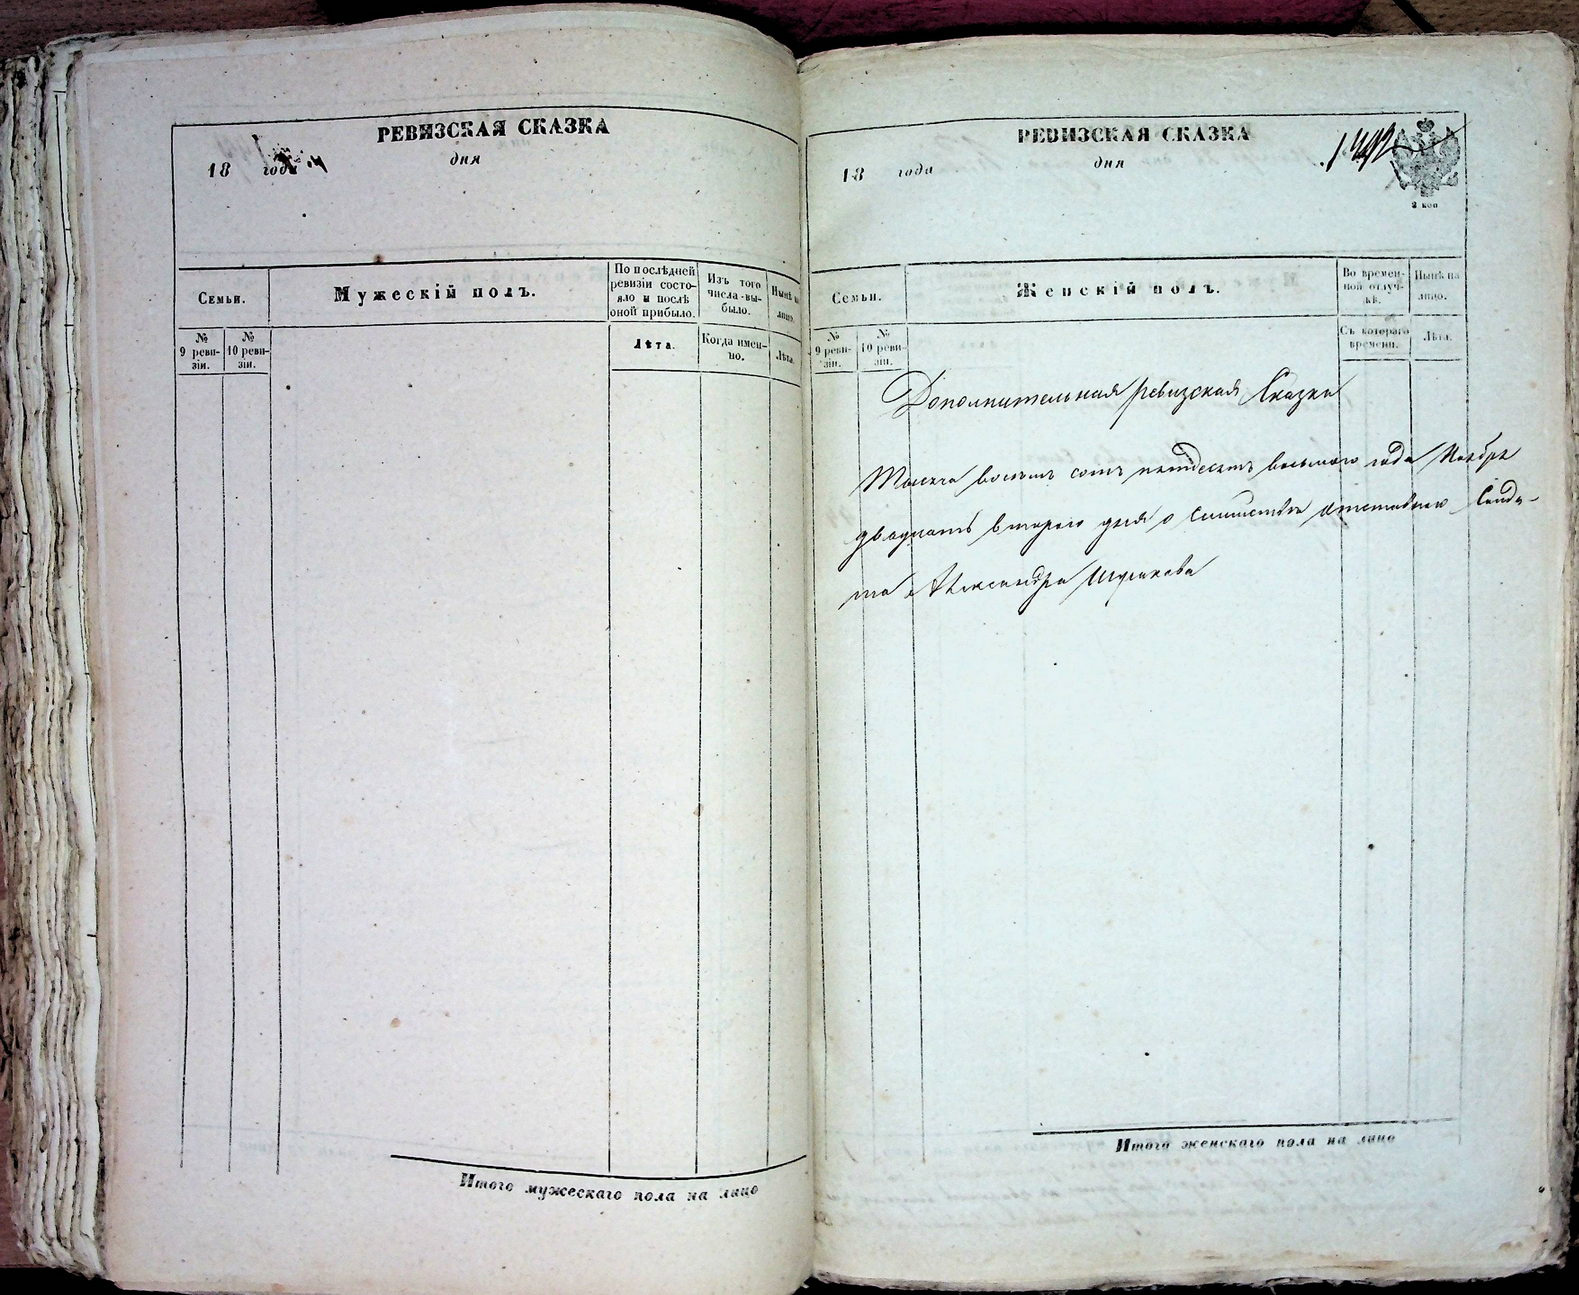 РЕВИЗСКАЯ СКАЗКА
18 года дня
Семьи.
Мужескій полъ.
По послѣдней ревизіи состояло и послѣ оной прибыло.
Изъ того числа выбыло.
Нынѣ на лицо.
№ 9 ревизіи.
№ 10 ревизіи.
Лѣта.
Когда именно.
Лѣта.
Итого мужескаго пола на лицо
РЕВИЗСКАЯ СКАЗКА
18 года дня
2 коп
Семьи.
Женскій полъ.
Во временной отлучкѣ.
Нынѣ на лицо.
№ 9 ревизіи.
№ 10 ревизіи.
Съ котораго времени.
Лѣта.
Дополнительная ревизская Сказка
Тысяча восемь сотъ пятдесятъ восьмаго года Ноября
двадцать втораго дня о семействѣ отставнаго Солда-
та Александра
Итого женскаго пола на лицо